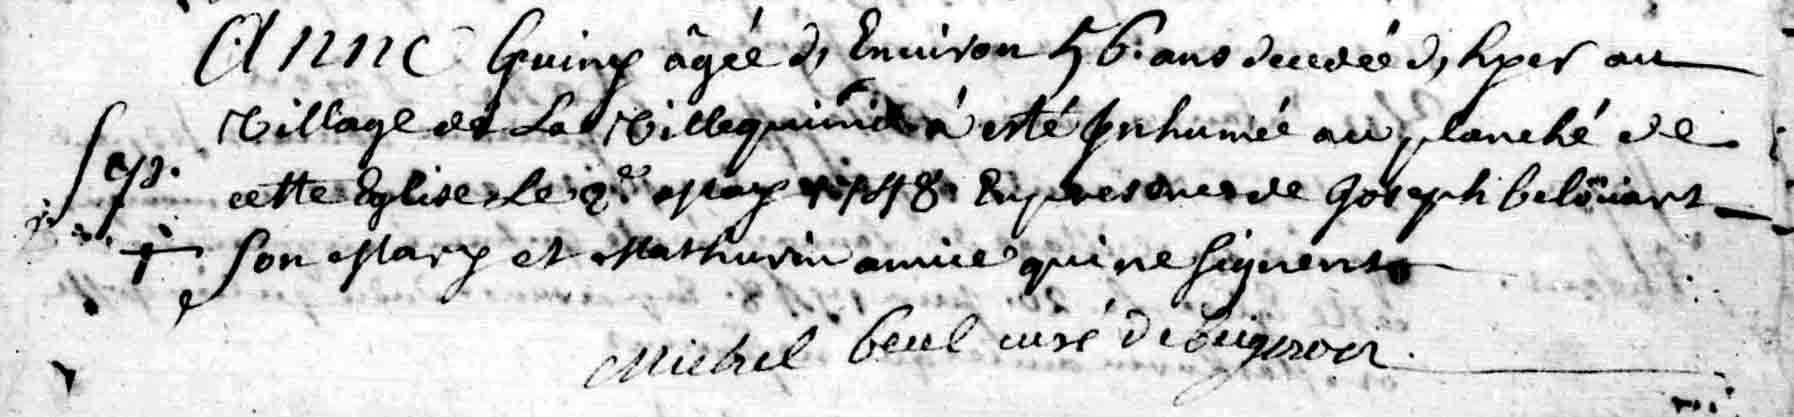 Anne Guiny âgée d, Environ 56. ans decedée d, hyer au
Village de La Villequinio à esté Inhumée au planché de
Sep. cette Eglise Le 2e May 1748 En presence de Joseph belöüart
Son Mary et Mathurin amice qui ne signent
Michel curé de